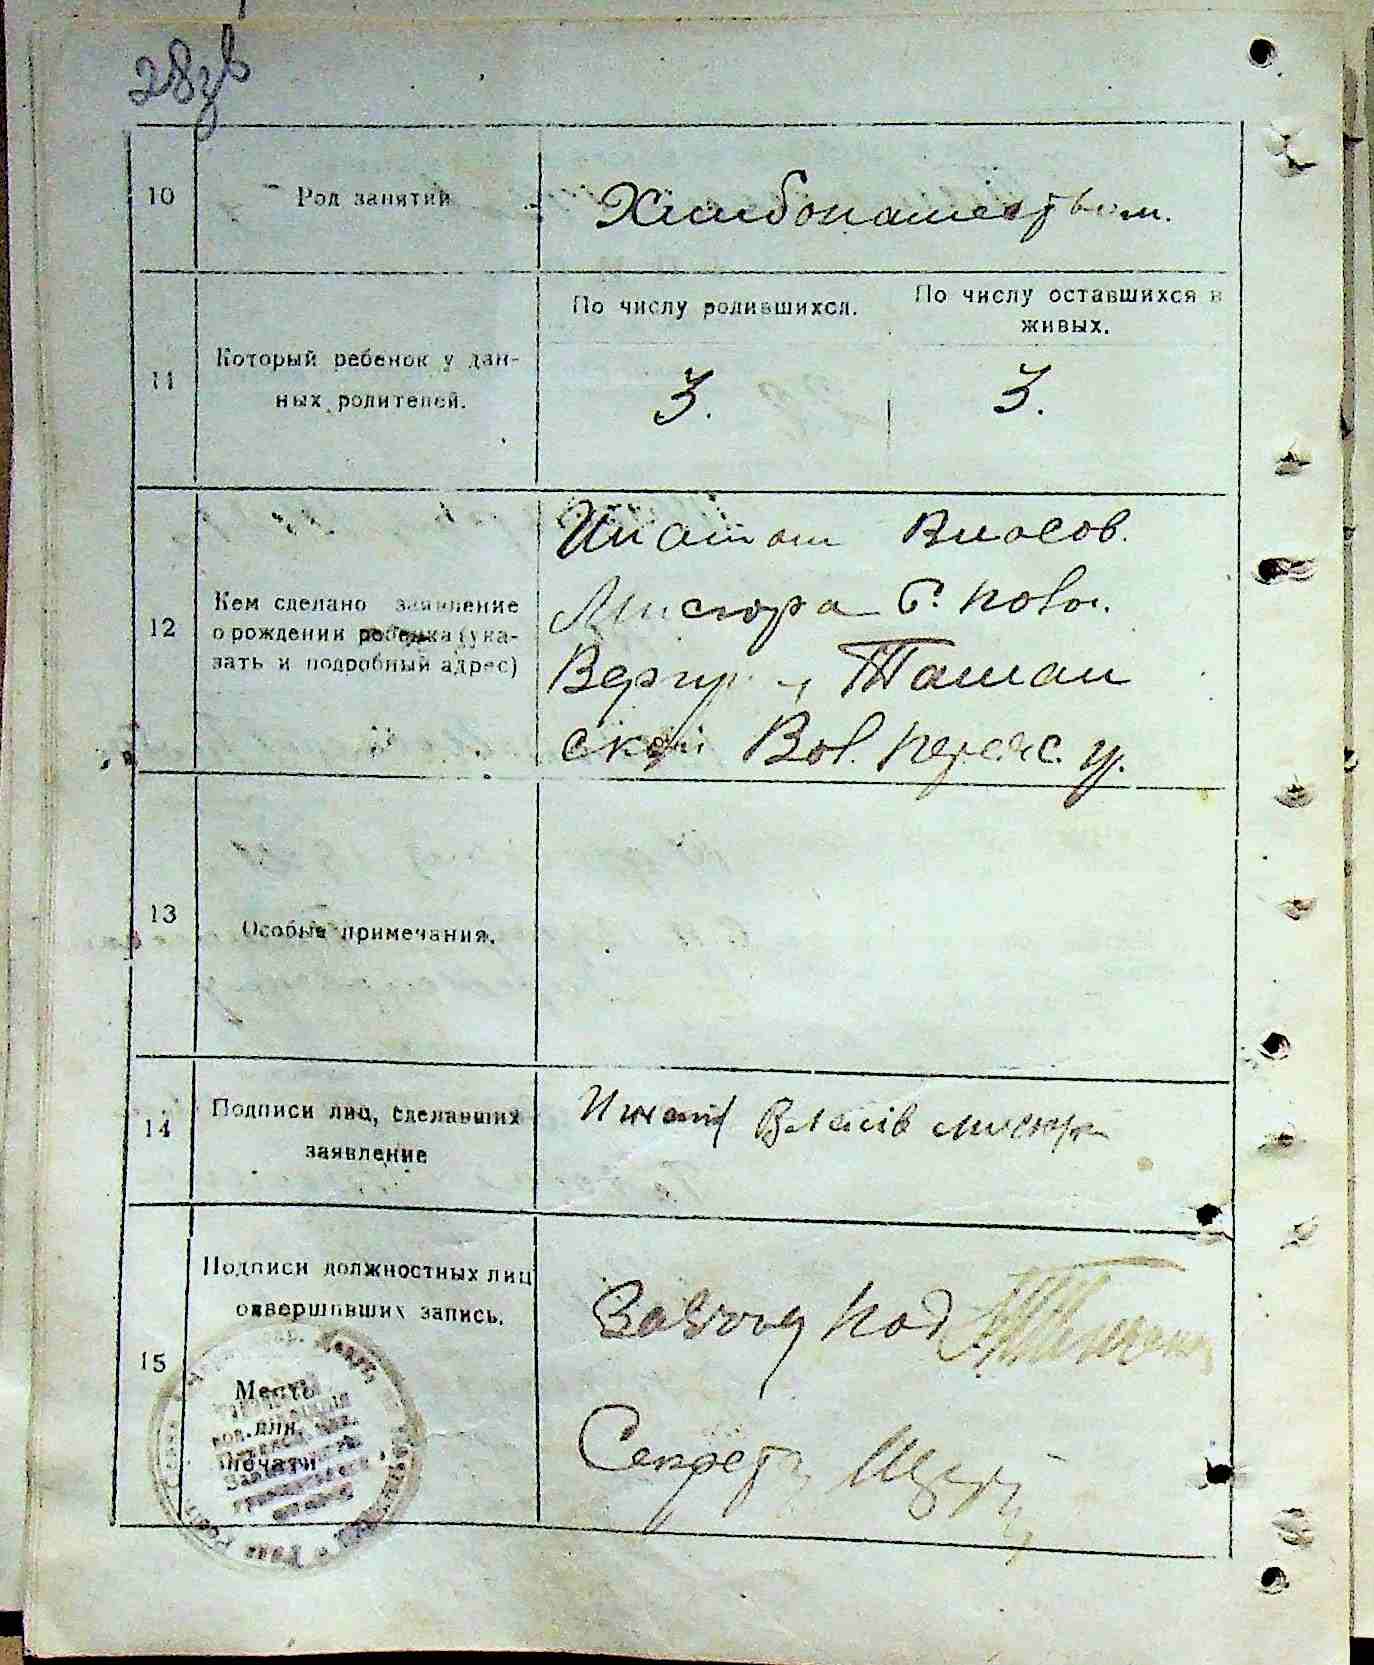 28зв
10 Род занятий
Хлибопашеством.
11 Который ребенок у дан-
ных родителей.
По числу родившихся.
По числу оставшихся в
живых.
3. 3.
12 Кем сделано заявление
о рождении ребенка (ука-
зать и подробный адрес)
Игнатом Власов.
Мисюра С.
Вергун. Ташан
ской Вол. Переяс. у.
13 Особые примечания.
14 Подписи лиц, сделавших
заявление
Игнат Власів Мисюра
15 Подписи должностных лиц
совершивших запись.
Место
для
печати
Завзагод Под
Секрет